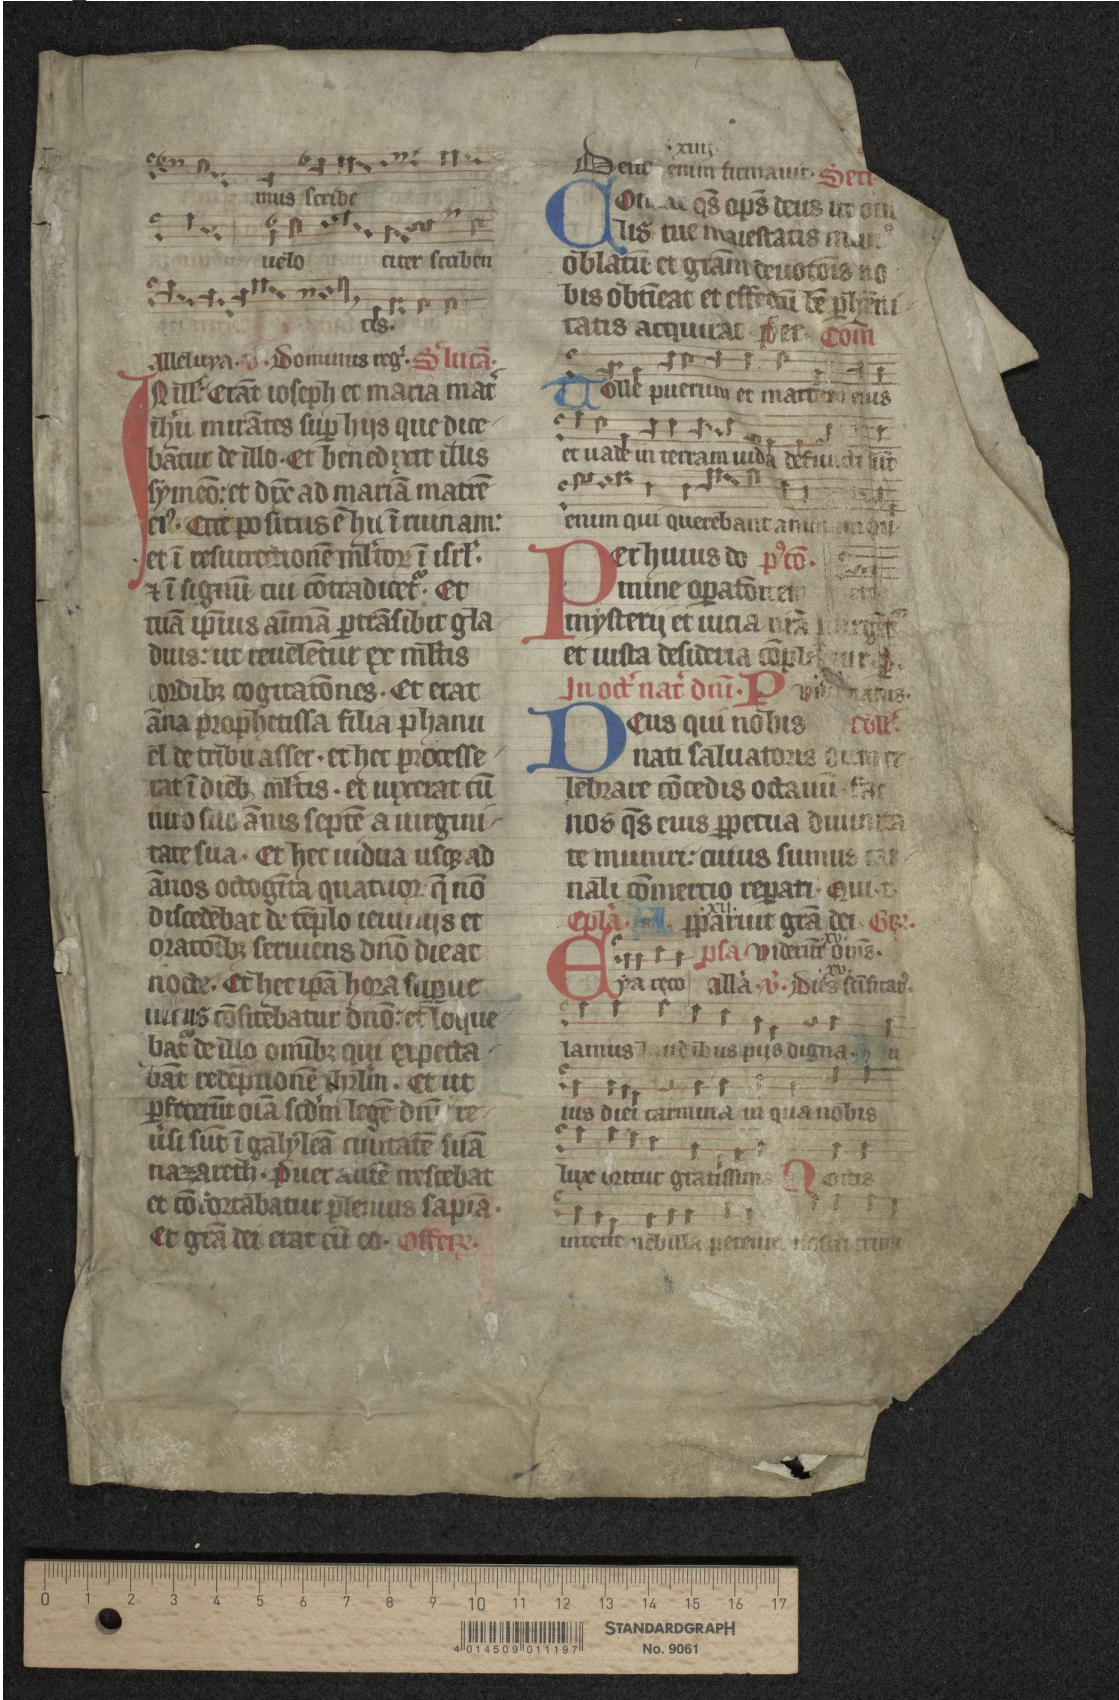 mus scribe
uelo citer scriben
tis.
Alleluya. v. Dominus reg᷒. S. lucā.
IN ill᷒. Erāt ioseph et maria mat᷒
ihū mirātes sup hijs que dice
bātur de illo. Et benedixit illis
symeō: et dix̄ ad mariā matrē
ei᷒. Ecce positus ē hij ī ruinam:
et ī resurrectionē ml̄tor ī isrl᷒.
⁊ ī signū cui cōtradicet᷒. Et
tuā ip̄ius aīmā ptrāsibit gla
dius: ut reuelētur ex ml̄tis
cordibꝫ cogitatōnes. Et erat
āna prophetissa filia phanu
el de tribu asser. et hec processe
rat ī dieb᷒ ml̄tis. et uixerat cū
uiro suo ānis septē a uirgini
tate sua. Et hec uidua usqꝫ ad
ānos octogīta quatuor. q̄ nō
discedebat de tēplo ieiunijs et
oratōibꝫ seruiens dn̄o die ac
nocte. Et hec ip̄a hora superue
niens cōfitebatur dn̄o: et loque
bat᷒ de illo omībꝫ qui expecta
bāt redēptionē ihrlm̄. Et ut
pfecerūt oīa scd̄m legē dn̄i re
u᷒si sūt ī galyleā ciuitatē suā
nazareth. Puer autē crescebat
et cōfortabatur plenus sapīa.
Et grā dei erat cū eo. Offerꝝ.
.xiiij.
Deus enim firmauit. Secr
Con qs̄ op̄s deus ut
lis tue maiestatis
oblatū et grām deuotōis no
bis obtīeat et effectū
tatis acquirat Per. Com̄
Tolle puerum et matrem eius
et uade in terram iuda defuncti sūt
enim qui querebant
Per huius do p᷒cō.
mine opatōnem
mysterij et uicia nrā purgēt᷒
et iusta desideria
In oct᷒ nat᷒ dn̄i. P natus.
Deus qui nobis coll᷒.
nati saluatoris diem ce
lebrare cōcedis octauū fac
nos qs̄ eius ppetua diuinita
te muniri: cuius sumus car
nali cōmercio repati. Qui t.
.xij.
Epl̄a. Apparuit grā dei Gr᷒.
Eya reco psa Viderūt om̄s.
All̄a. v. Dies sc̄ificat᷒.
lamus laudibus pijs digna. h u
ius diei carmina in qua nobis
lux oritur gratissima Noctis
interit nebula pereunt nostri crim
0 1 2 3 4 5 6 7 8 9 10 11 12 13 14 15 16 17
STANDARDGRAPH
4 014509 011197
No. 9061